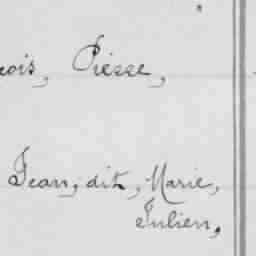 çois, Pierre,
Jean, dit, Marie,
Julien,